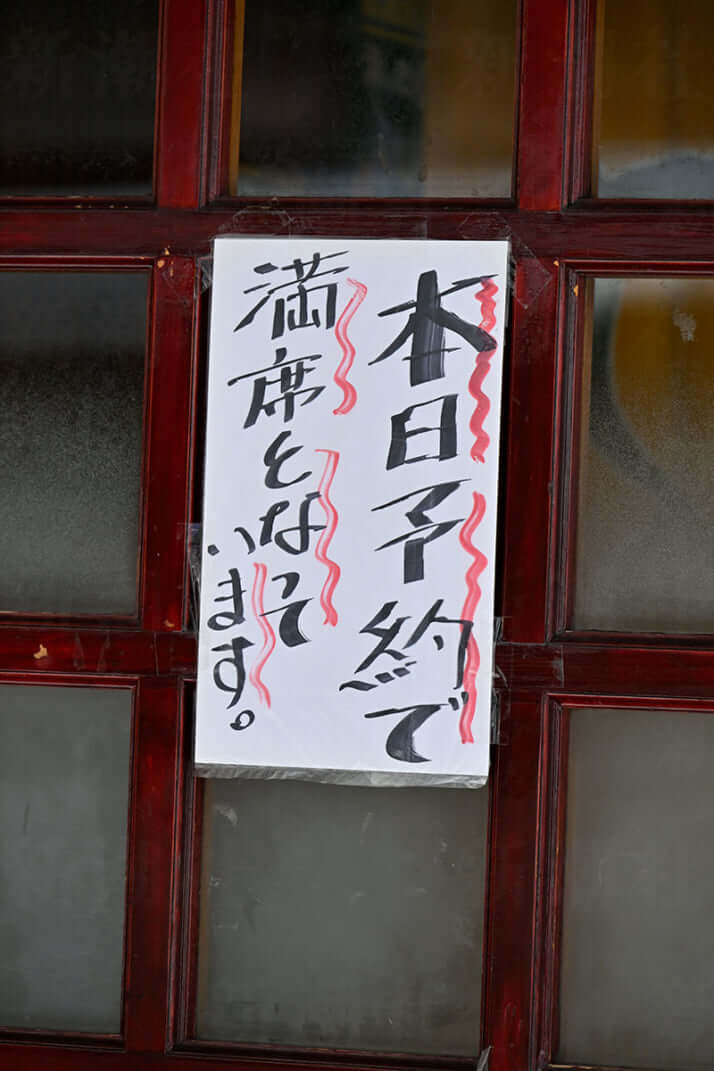 本日予約で
満席となって
います。